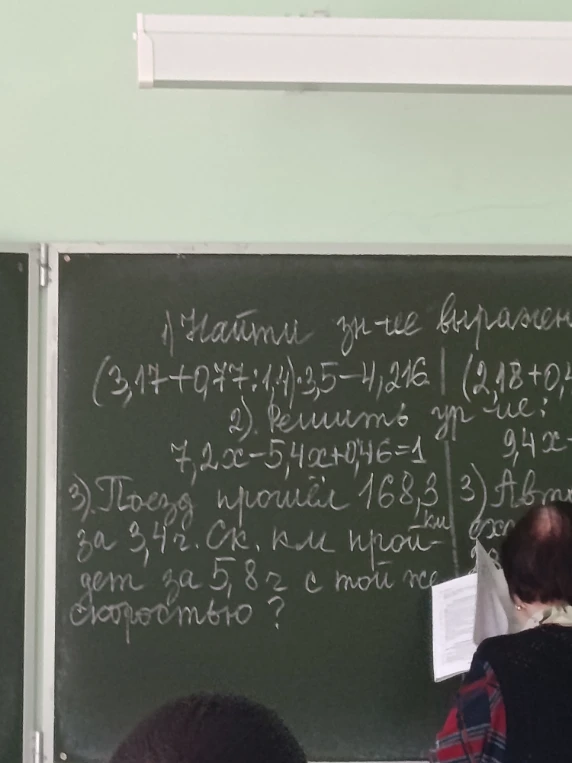 1) Найти зн-ие выражен
(3,17+0,77:1,4)·3,5-4,216 (2,18+0,4
2). Решить ур-ие:
7,2x-5,4x+0,46=1 9,4x-
3). Поезд прошёл 168,3 км 3) Авт
за 3,4 ч. Ск. км прой-
дет за 5,8 ч с той же
скоростью?